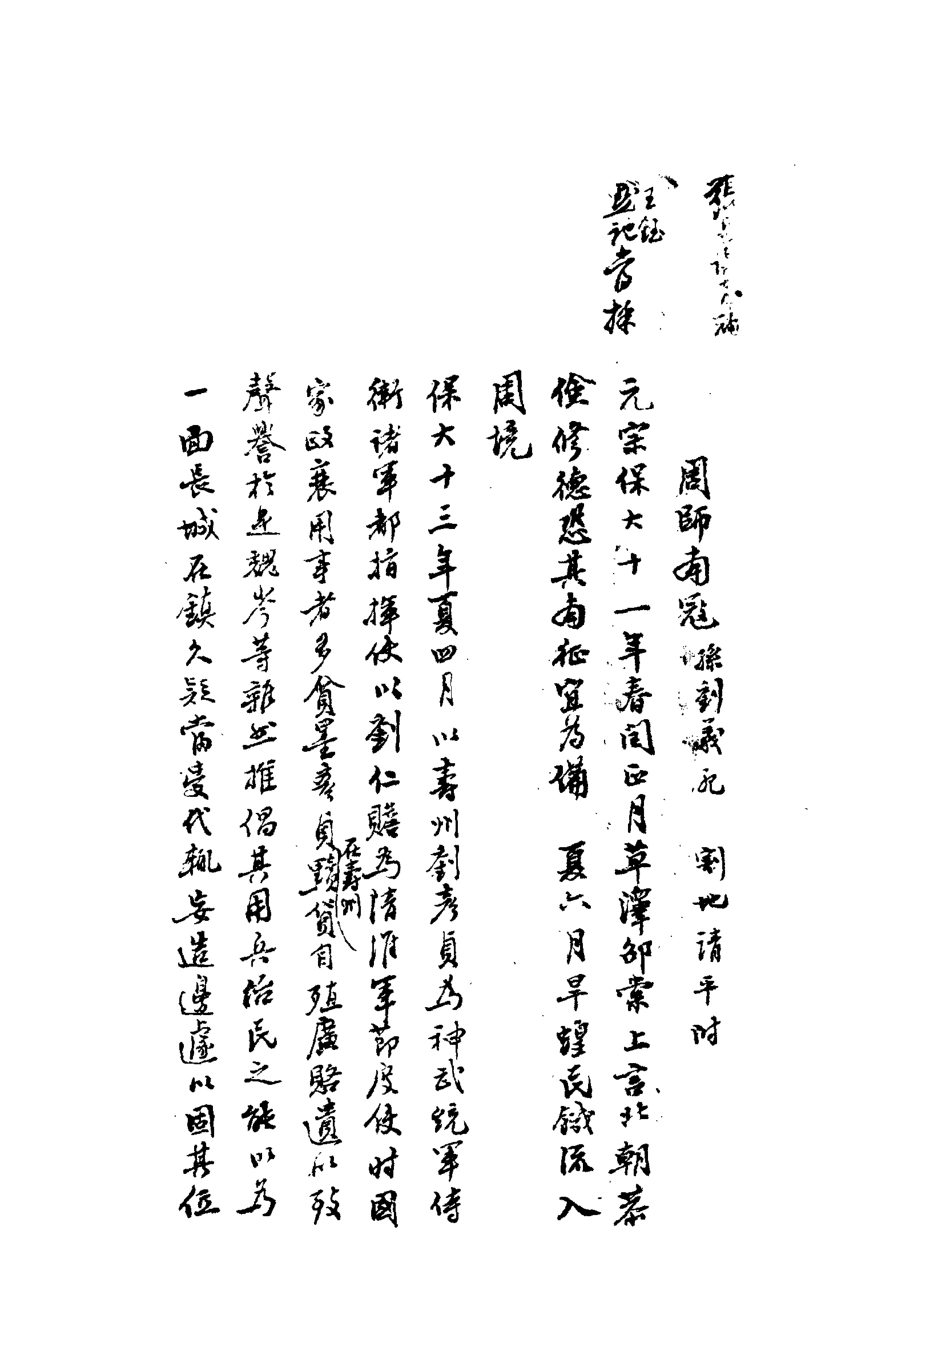 周師南寇 孫劉義死 割地請平附
元宗保大十一年春閏正月草澤邵棠上言北朝恭
儉修德恐其南征宜為備 夏六月旱蝗民饑流入
周境
保大十三年夏四月以壽州劉彥貞為神武統軍侍
衛諸軍都指揮使以劉仁贍為清淮軍節度使时國
家政衰用事者多貪墨彥貞在壽州黷貨自殖廣賂遺以致
聲譽於是魏岑等雜然推倡其用兵治民之能以為
一面長城在鎮久疑當受代輒妄造邊遽以固其位
王鈺
登記